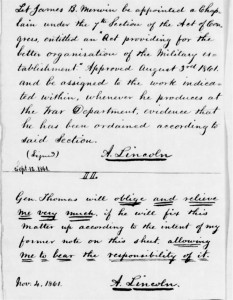 Let James B. Merwin be appointed a Chap
lain under the 7th Section of the Act of Con
gress, entitled an "Act providing for the
better organization of the Military es-
tablishment" Approved August 3rd 1861.
and be assigned to the work indica-
ted within, whenever he produces at
the War Department, evidence that
he has been ordained according to
said Section.
(Signed) A. Lincoln
Sept. 13. 1861.
II.
Gen. Thomas will oblige and relieve
me very much, if he will fix this
matter up according to the intent of my
former note on this sheet, allowing
me to bear the responsibility of it.
Nov. 4, 1861. A. Lincoln.